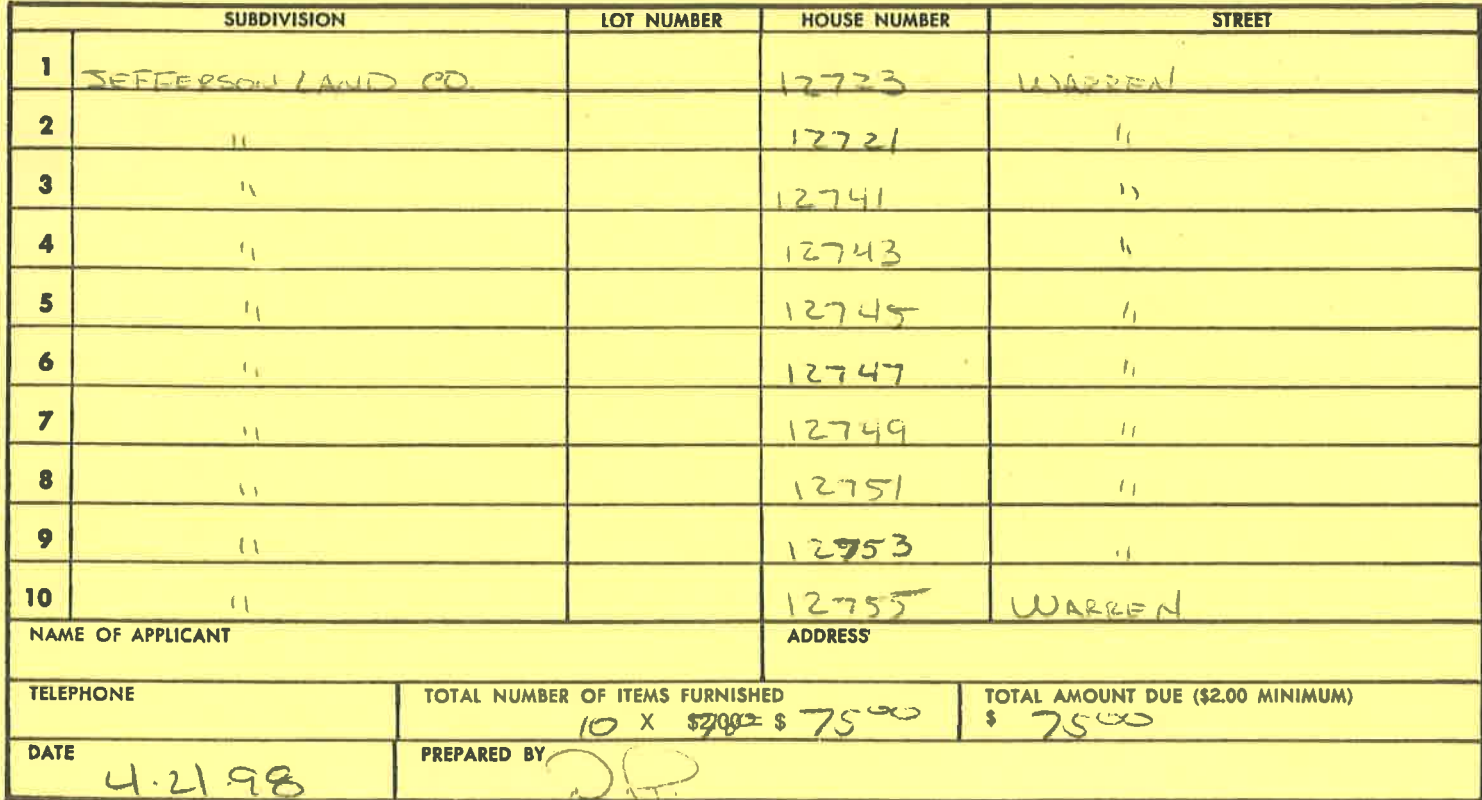 SUBDIVISION LOT NUMBER HOUSE NUMBER STREET
1 JEFFERSON LAND CO. 12723 WARREN
2 " 12721 "
3 " 12741 "
4 " 12743 "
5 " 12745 "
6 " 12747 "
7 " 12749 "
8 " 12751 "
9 " 12753 "
10 " 12755 WARREN
NAME OF APPLICANT ADDRESS
TELEPHONE TOTAL NUMBER OF ITEMS FURNISHED TOTAL AMOUNT DUE ($2.00 MINIMUM)
10 X $ 75 00 $ 75 00
DATE PREPARED BY
4.21.98